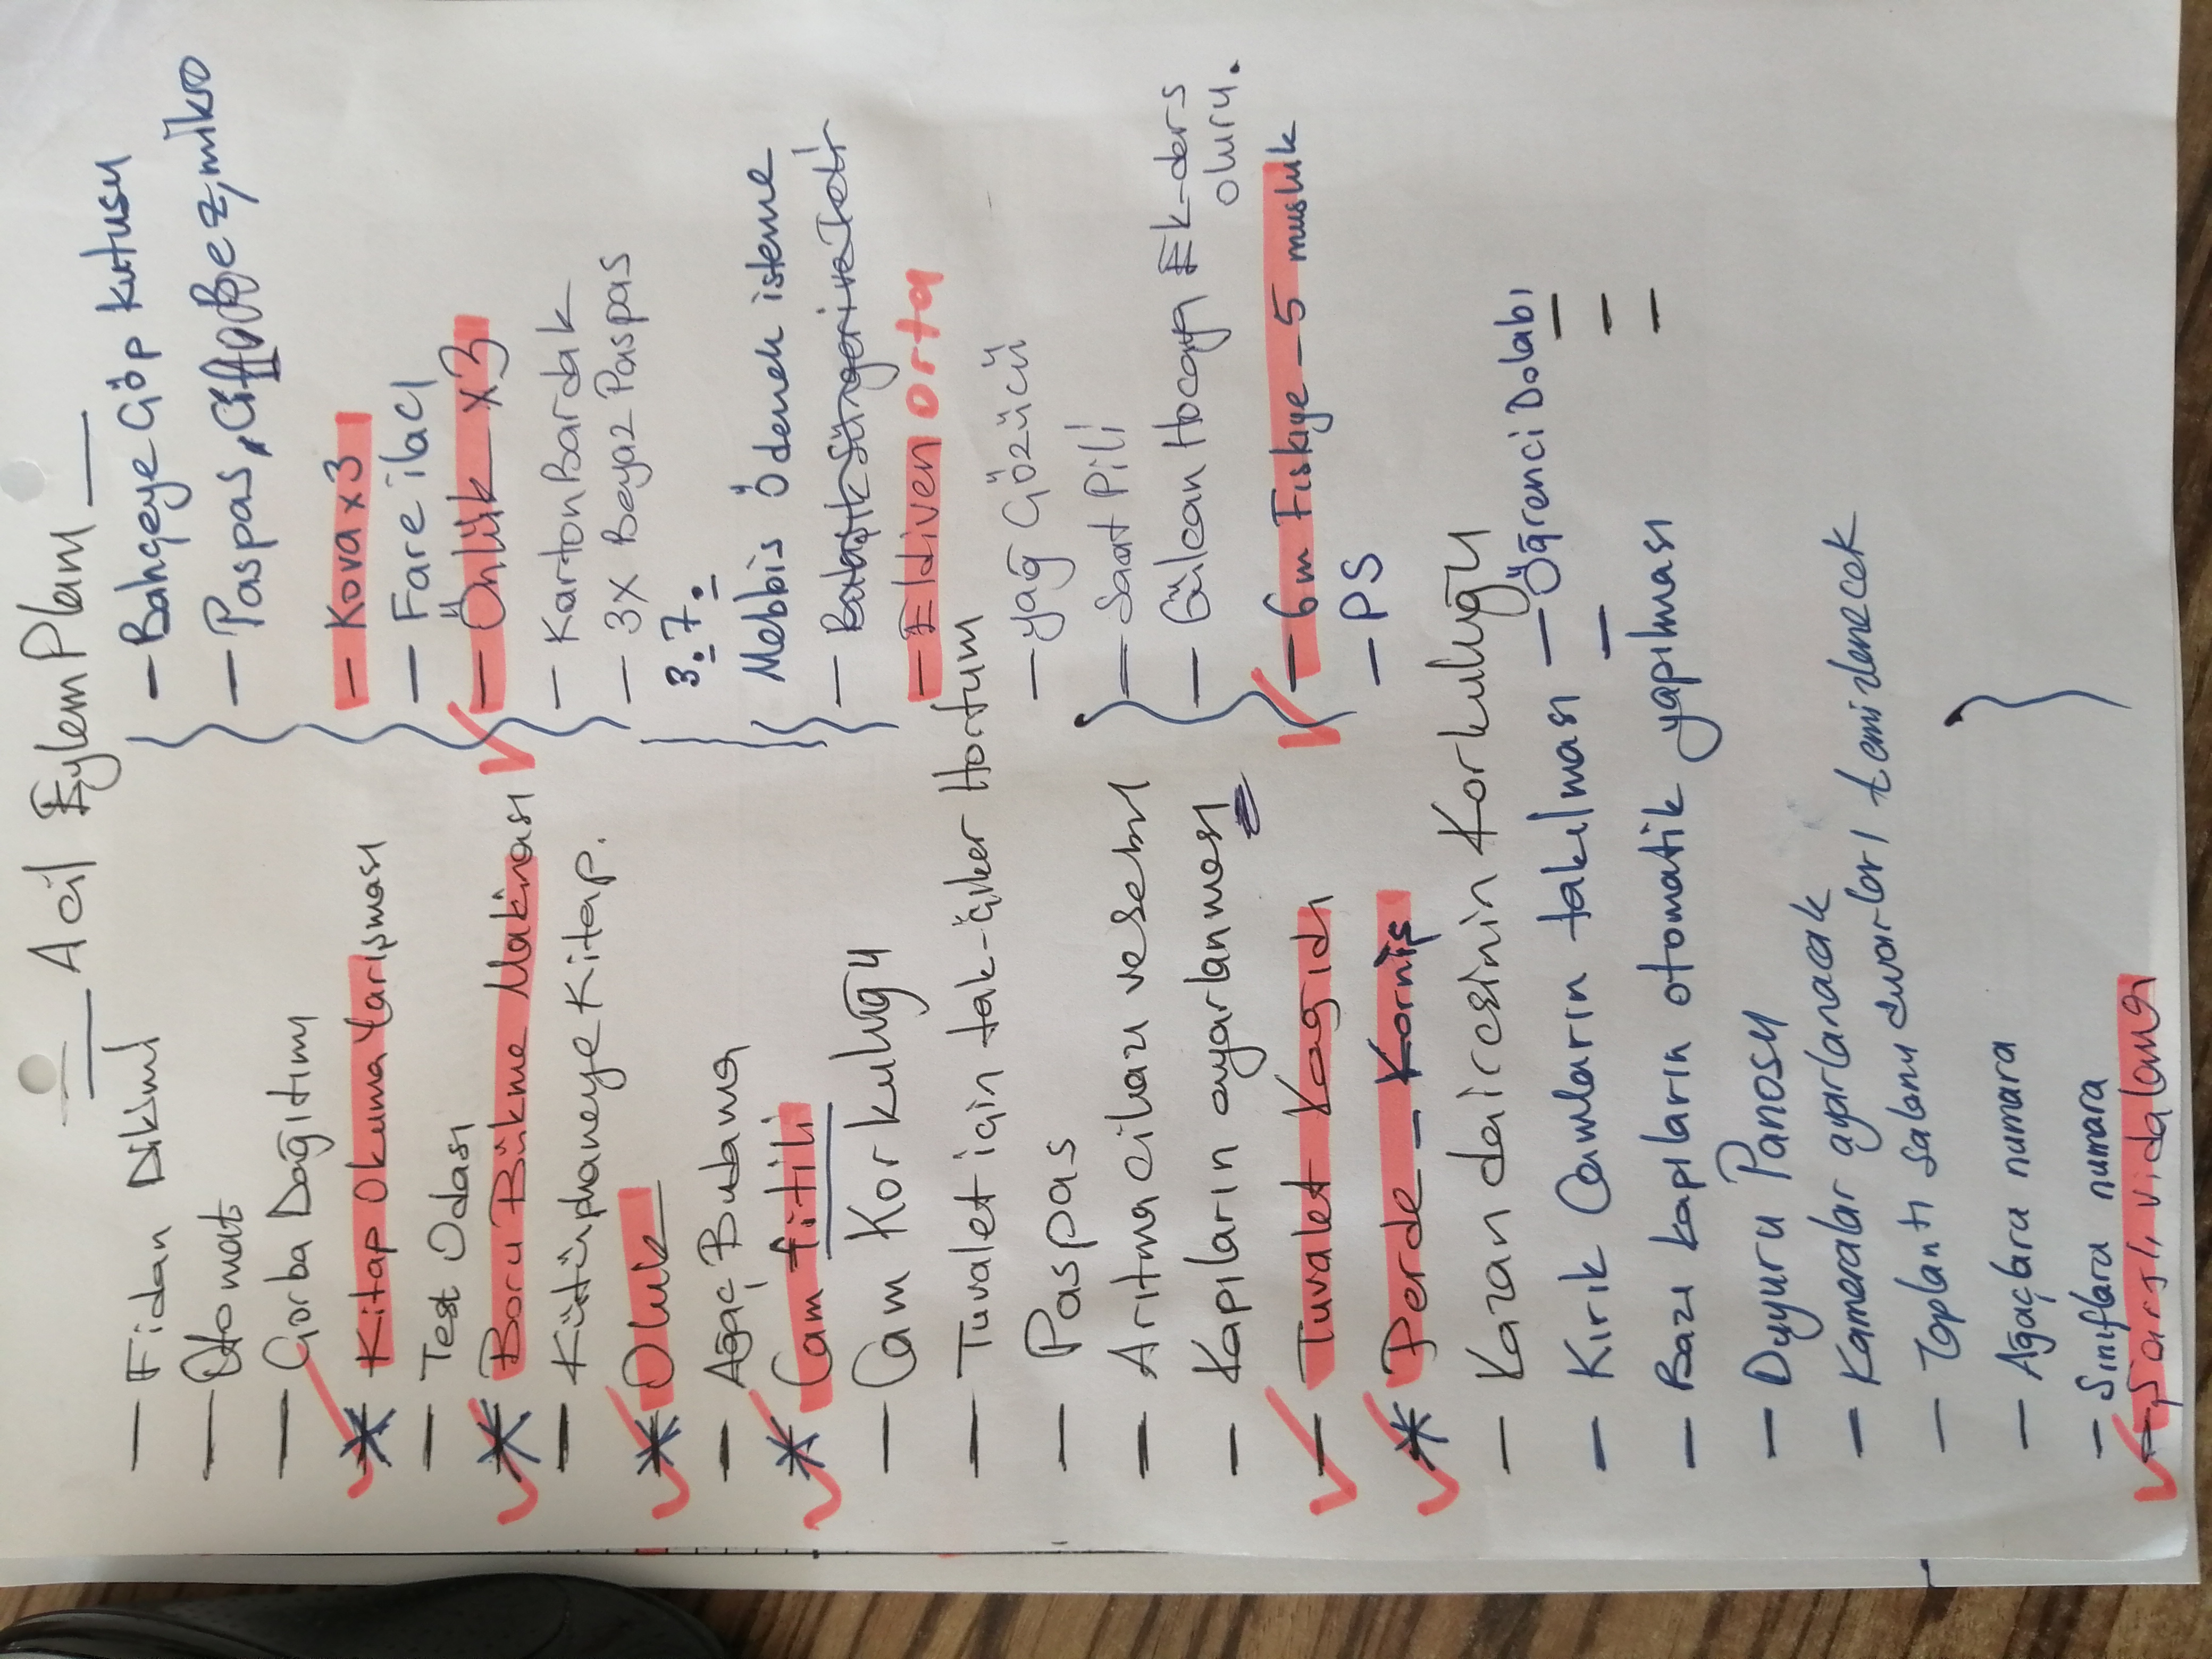 Acil Eylem Planı
- Fidan Dikimi
- Otomat
- Çorba Dağıtımı
* Kitap Okuma Yarışması
- Test Odası
* Boru Bükme Makinası
- Kütüphaneye Kitap.
* Oluk
- Ağaç Budama
* Cam fitili
- Cam Korkuluğu
- Tuvalet için tak-çiker Hortum
- Paspas
- Arıtma cihazı ve sebili
- Kapıların ayarlanması
- Tuvalet Kağıdı
* Perde - Korniş
- Kazan dairesinin Korkuluğu
- Kırık Camların takılması
- Bazı kapıların otomatik yapılması
- Duyuru Panosu
- Kameralar ayarlanacak
- Toplantı salonu duvarları temizlenecek
- Ağaçlara numara
- Sınıflara numara
- Şarjlı vidalama
- Bahçeye Çöp kutusu
- Paspas, Bez, mikro
- Kova x3
- Fare ilacı
- Önlük x3
- Karton Bardak
- 3x Beyaz Paspas
3.7.
Mebbis Ödenek isteme
- Eldiven orta
- yağ Çözücü
- Saat Pili
- Gülcan Hocaya Ek-ders
oluru.
- 6m Fıskiye - 5 musluk
- PS
- Öğrenci Dolabı